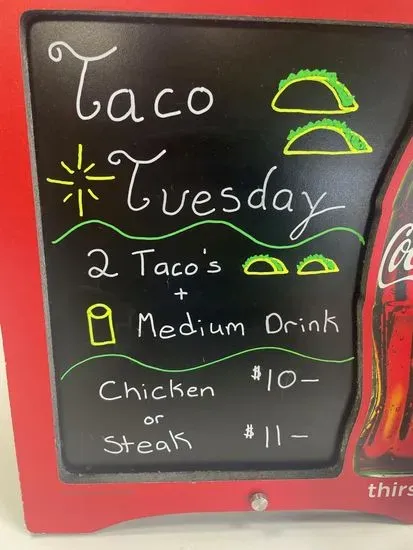 Taco
Tuesday
2 Taco's
+
Medium Drink
Chicken $10—
or
Steak $11—
thirs